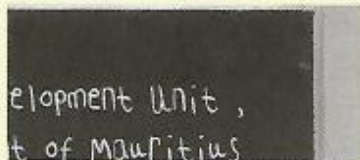 elopment Unit,
t of Mauritius